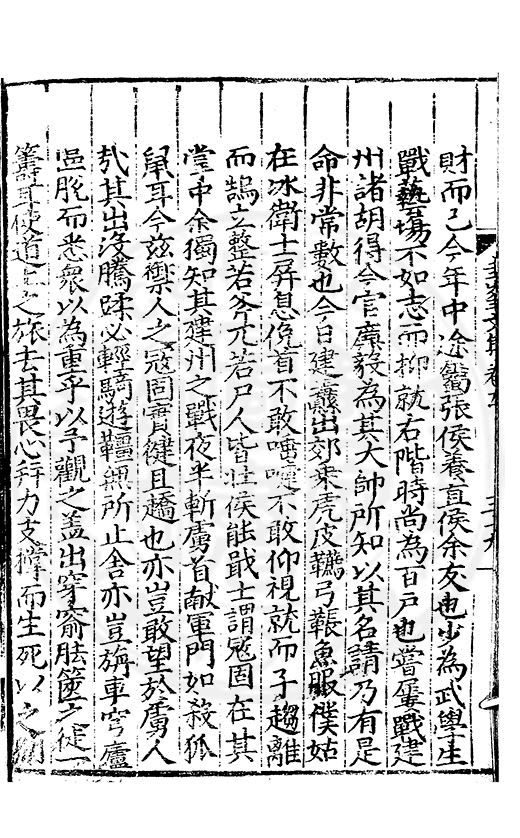 財而已今年中途獨張侯養直侯余友也少為武學生
戰藝場不如志而抑就右階時尚為百戶也嘗從戰建
州諸胡得今官廉毅為其大帥所知以其名請乃有是
命非常數也今日建纛出郊乘虎皮韉弓韔魚服僕姑
在冰衛士屏息俛首不敢嚏噫不敢仰視就而子趨離
而鵠立整若斧兀若尸人皆壯侯能戢士謂寇固在其
掌中余獨知其建州之戰夜半斬虜首獻軍門如殺狐
鼠耳今茲禦人之寇固實健且趫也亦豈敢望於虜人
㦲其出沒騰蹂必輕騎遊韁無所止舍亦豈旃車穹廬
區脫而悉衆以為重乎以予觀之蓋出穿窬胠篋之徒一
籌耳使道上之旅去其畏心并力支撑而生死以之